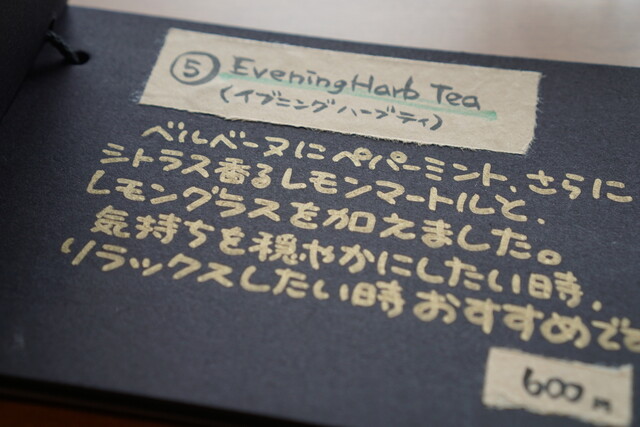 ⑤ Evening Harb Tea
(イブニングハーブティ)
ベルベーヌにペパーミント、さらに
シトラス香るレモンマートルと、
レモングラスを加えました。
気持ちを穏やかにしたい時、
リラックスしたい時おすすめです
600円